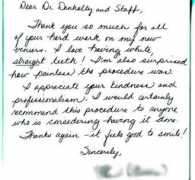 Dear Dr. Dunkelley and Staff,
Thank you so much for all
of your hard work on my new
veneers. I love having white,
straight teeth! I'm also surprised
how painless the procedure was!
I appreciate your kindness and
professionalism. I would certainly
recommend this procedure to anyone
who is considering having it done.
Thanks again - it feels good to smile!
Sincerely,